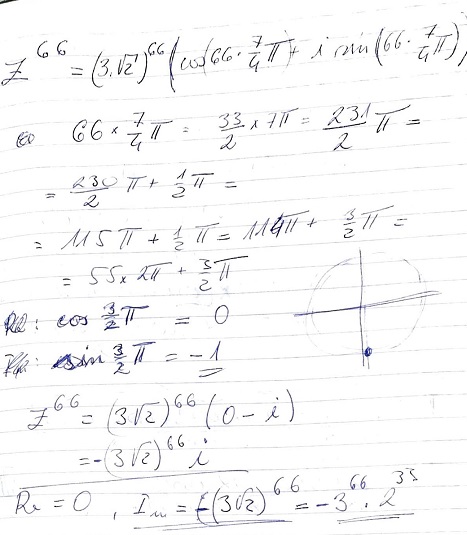 Z^66 = (3·√2)^66 (cos(66·7/4π) + i sin(66·7/4π))
66 × 7/4π = 33/2 × 7π = 231/2 π =
= 230/2 π + 1/2π =
= 115π + 1/2π = 114π + 3/2π =
= 55 × 2π + 3/2π
: cos 3/2π = 0
: sin 3/2π = -1
Z^66 = (3√2)^66 (0 - i)
= -(3√2)^66 i
Re = 0, Im = -(3√2)^66 = -3^66 · 2^33